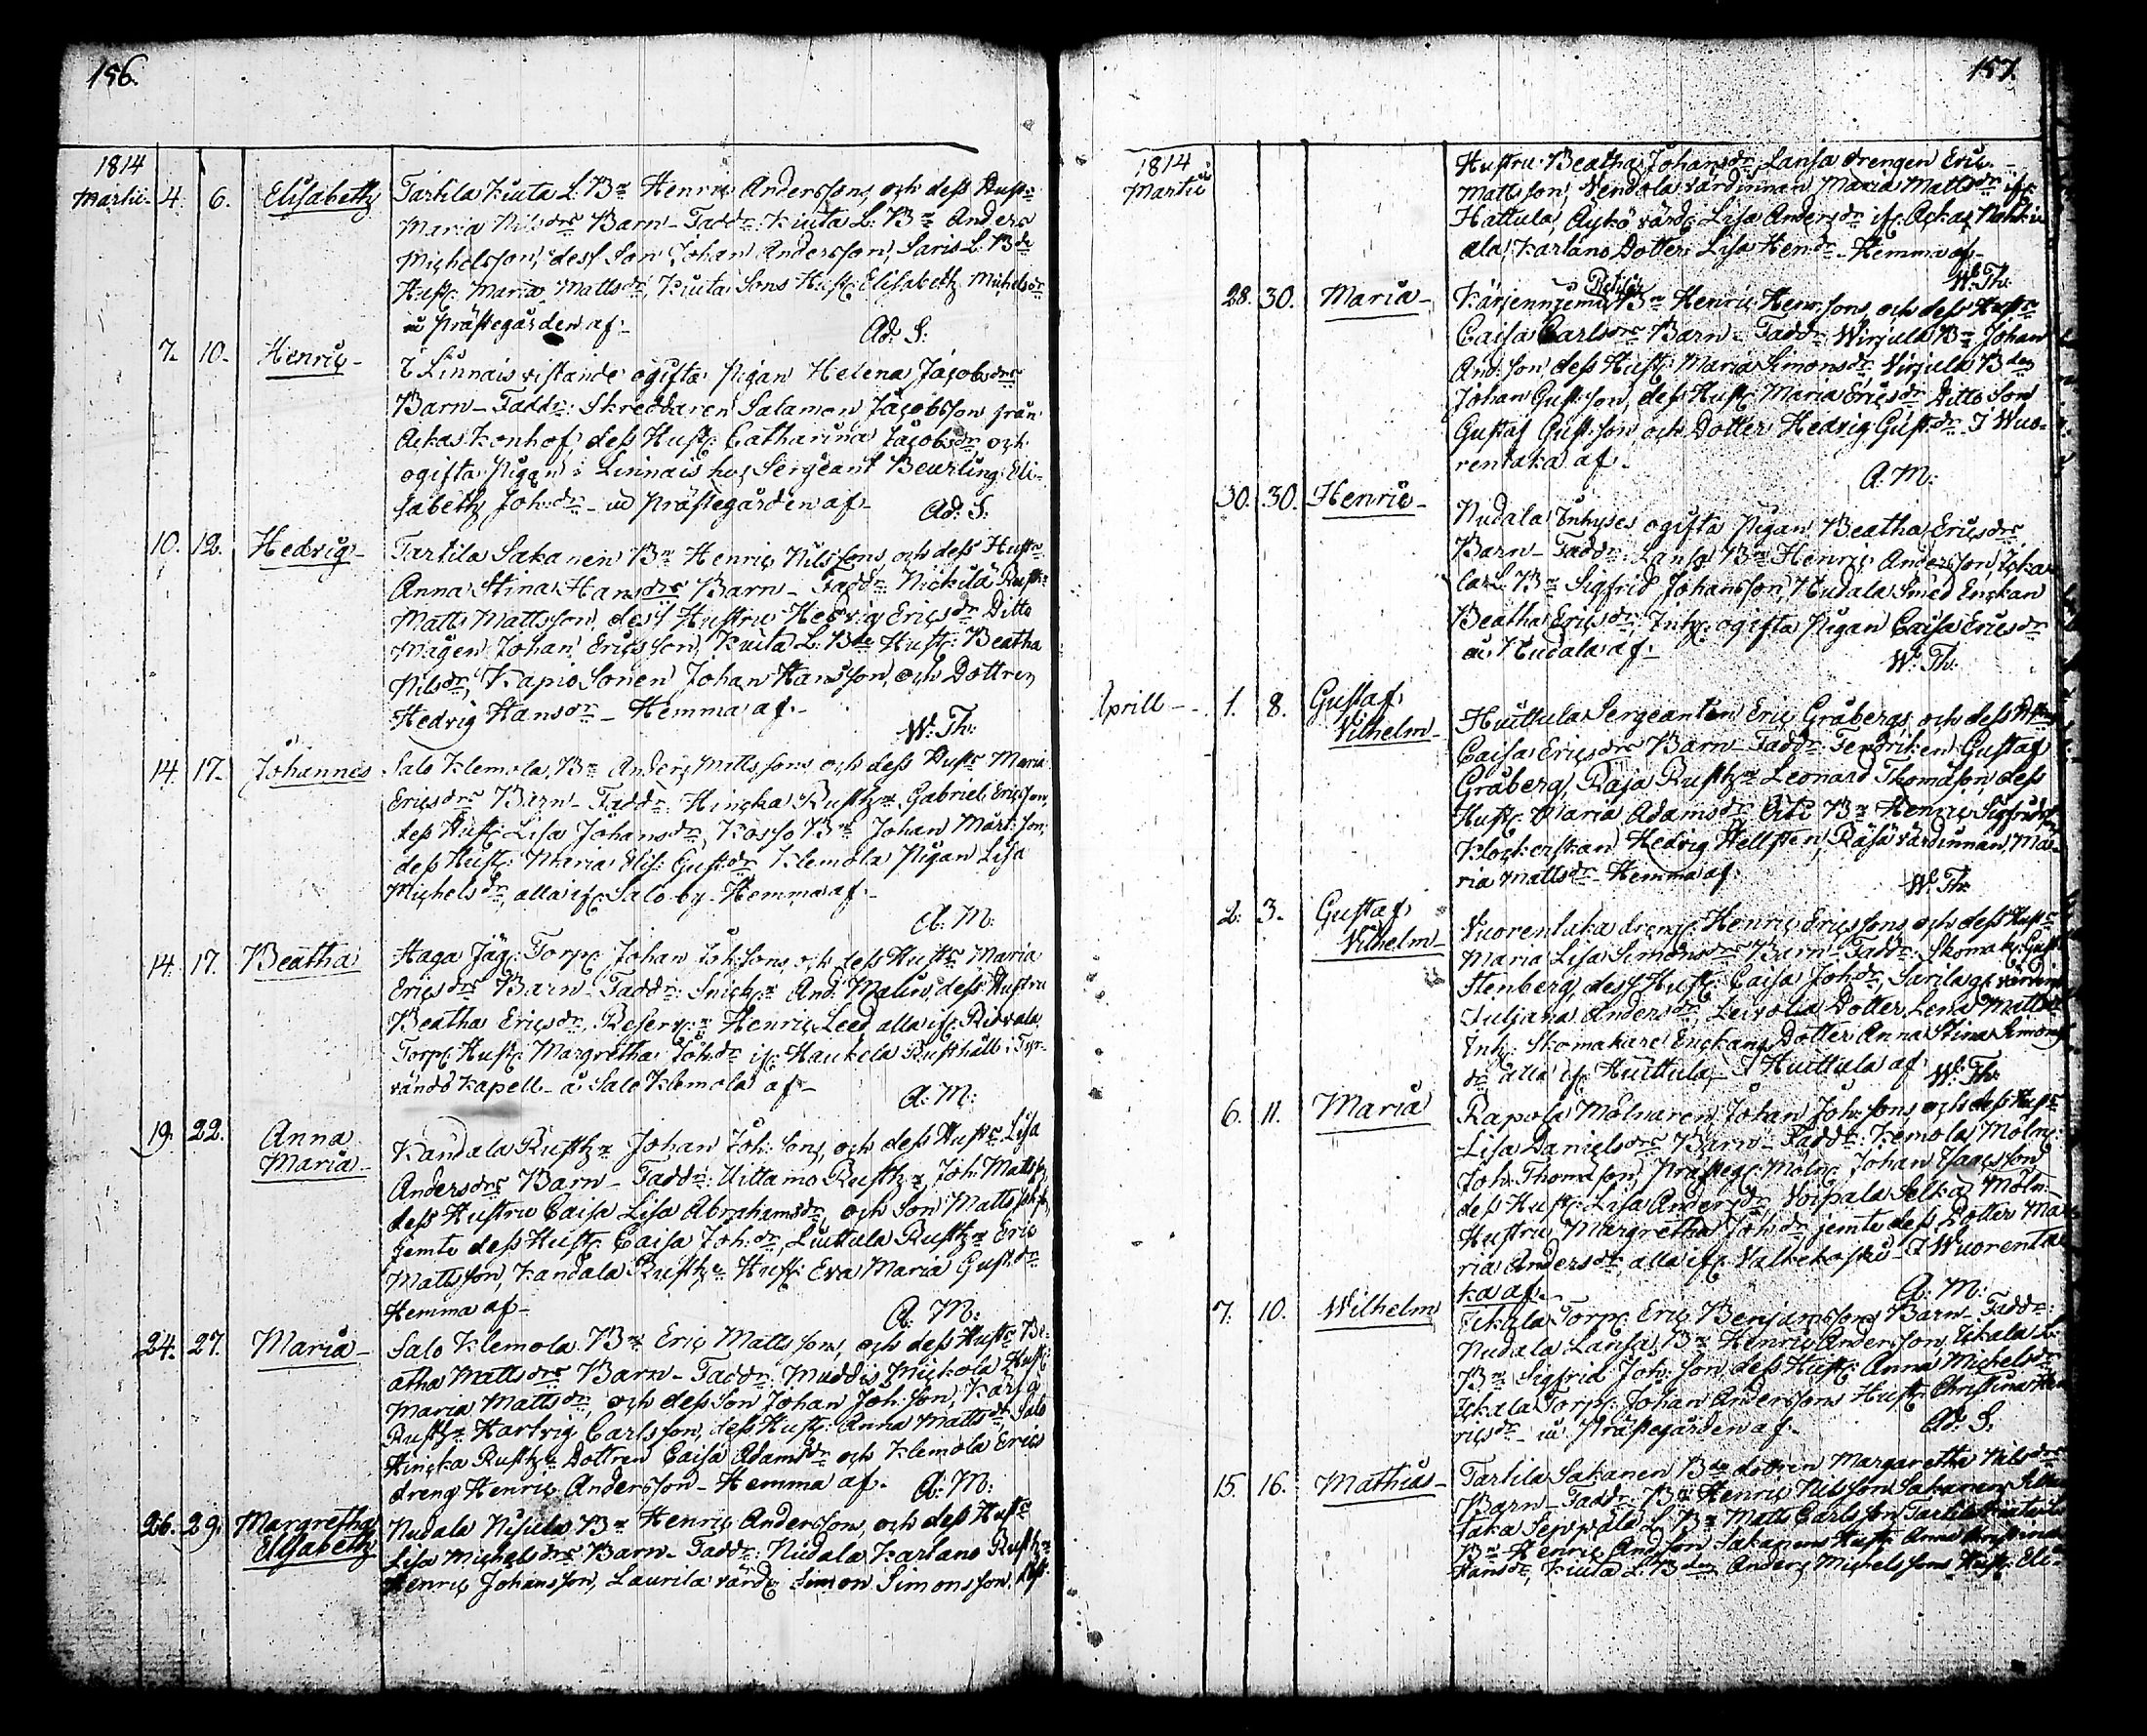 156.
1814
Martii. 4. 6. Elisabeth Tarttila Kiuta L. Bn Henric Anderssons, och dess Hustr
Maria Nilsdrs Barn - Faddr: Kiuta L. Bn Anders
Michelsson, dess Son Johan Andersson, Saris L. Bde
Hust: Maria Mattsdr, Kiuta Sons Hust: Elisabeth Michelsdr
i Prästegården af - Ad: S:
7. 10. Henric - I Linnais vistande ogifta Pigan Helena Jacobsdrs
Barn - Faddr: Skreddaren Salamon Jacobsson från
Ackas Konhof, dess Hust: Catharina Jacobsdr, och
ogifta Pigan i Linnais hos Sergeant Beurling Eli-
sabeth Joh:dr - i Prästegården af - Ad: S:
10. 12. Hedvig - Tarttila Sakanen Bn Henric Nilssons, och dess Hustr
Anna Stina Hansdrs Barn - Faddr: Nickilä Rusth:
Matts Mattsson, dess Hustru Hedvig Ericsdr Ditto
Mågen Johan Ericsson, Kiuta L. Bde Hust: Beatha
Nilsdr, Kapio Sonen Johan Hansson, och Dottren
Hedvig Hansdr - Hemma af - W: Th:
14. 17. Johannes Salo Klemola Bn Anders Mattssons och dess Hustr Maria
Ericsdrs Barn - Faddr: Hincka Rusth:n Gabriel Ericsson,
dess Hust: Lisa Johansdr, Kosso Bn Johan Mårt:son,
dess Hust: Maria Elis: Gust:dr Klemola Pigan Lisa
Michelsdr, alla if: Salo by - Hemma af -
A: M:
14. 17. Beatha Haga Jäg: Torp: Johan Joh:sons och dess Hustr Maria
Ericsdrs Barn - Faddr: Snick:n And: Malin, dess Hustru
Beatha Ericsdr, Reserv:n Henric Leed alla if: Ridvala
Torp: Hust: Margretha Joh:dr if: Haukela Rusthåll i Tyr-
vändö Kapell - å Salo Klemola af -
A: M:
19. 22. Anna Kandala Rusth:n Johan Joh:sons, och dess Hustr Lisa
Maria - Andersdrs Barn - Faddr: Uittamo Rusth:n Joh: Mattss:
dess Hustru Caisa Lisa Abrahamsdr, och Son Matts Joh:s:
jemte dess Hust: Caisa Joh:dr, Luttula Rusth:n Eric
Mattsson, Kandala Rusth:s Hust: Eva Maria Gust:dr
Hemma af - A: M:
24. 27. Maria - Salo Klemola Bn Eric Mattssons, och dess Hustr Be-
atha Mattsdrs Barn - Faddr: Muddis Mickola Hust:
Maria Mattsdr, och dess Son Johan Joh:son,
Rusth:n Hartvig Carlsson, dess Hust: Anna Mattsdr Salo
Hincka Rusth:s Dottren Caisa Adamsdr och Klemola Erics
dreng Henric Andersson - Hemma af - A: M:
26. 29. Margretha Nudala Nisula Bn Henric Anderssons, och dess Hustr
Elisabeth Lisa Michelsdrs Barn - Faddr: Nudala Karlano Rusth:n
Henric Johansson, Laurila värd: Simon Simonsson, dess
157.
1814
Martii Hustru Beatha Johansdr, Lansa drengen Eric
Mattsson, Vendola värdinnan Maria Mattsdr if:
Hattula, Ayhö värd: Lisa Andersdr if: Ackas
ala, Karlano Dotter Lisa Hen:dr - Hemma af -
W: Th:
28. 30. Maria - Bn Henric Henr:sons, och dess Hustr
Caisa Carlsdrs Barn - Faddr: Wirjula Bn Johan
And:son, dess Hust: Maria Simonsdr, Virjula Bden
Johan Gust:son, dess Hust: Maria Ericsdr Ditto Son
Gustaf Gust:son och Dotter Hedvig Gust:dr - I Wuo-
rentaka af -
A: M:
30. 30. Henric - Nudala Inhyses ogifta Pigan Beatha Ericsdrs
Barn - Faddr: Lansa Bn Henric Andersson, Icka-
la L. Bn Sigfrid Johansson, Nudala Smed Enckan
Beatha Ericsdr, Inh: ogifta Pigan Caisa Ericsdr
å Nudala af - W: Th:
Aprill - 1. 8. Gustaf Huittula Sergeanten Eric Gråbergs, och dess Hustr
Vilhelm - Caisa Ericsdrs Barn - Faddr: Fendriken Gustaf
Gråberg, Räja Rusth:n Leonard Thomasson, dess
Hust: Maria Adamsdr Bn Henric Sigfridss
Klockerskan Hedvig Hellsten, Räsä värdinnan Ma-
ria Mattsdr - Hemma af W: Th:
2. 3. Gustaf Vuorentaka dreng: Henric Ericssons och dess Hustr
Vilhelm - Maria Lisa Simonsdrs Barn - Faddr: Skomak: Gust:
Stenberg, dess Hust: Caisa Joh:dr, värdin
Juljana Andersdr, Leivola Dotter Lena Mattsdr
Inh: Skomakare Enckans Dotter Anna Stina Simons
dr alla if: Huittula, I Huittula af W: Th:
6. 11. Maria Rapola Mölnaren Johan Joh:sons och dess Hustr
Lisa Danielsdrs Barn - Faddr: Kemola Möln:
Joh: Thomasson, Prästeg: Möln: Johan Isacsson
dess Hust: Lisa Andersdr, Voipala Selkä Möln:
Hustru Margretha Joh:dr jemte dess Dotter Ma-
ria Andersdr, alla if: Valkekoski - I Wuorenta-
ka af - A: M:
7. 10. Wilhelm Ickala Torp: Eric Benjamssons Barn - Faddr:
Nudala Lansa Bn Henric Andersson, Ickala L.
Bn Sigfrid Joh:son, dess Hust: Anna Michelsdr
Ickala Torp: Johan Anderssons Hust: Christina
ricsdr - i Prästegården af - Ad: S:
15. 16. Mathias - Tarttila Sakanen Bde dottren Margaretha Nilsdrs
Barn - Faddr: Bn Henric Nilsson Sakanen,
taka Seppälä L. Bn Matts Carlsson, Tarttila Kiuta L.
Bn Henric Andsson Sakanens Hust: Anna Christina
Hansdr, Kiuta L. Bden Anders Michelssons Hust: Eli-